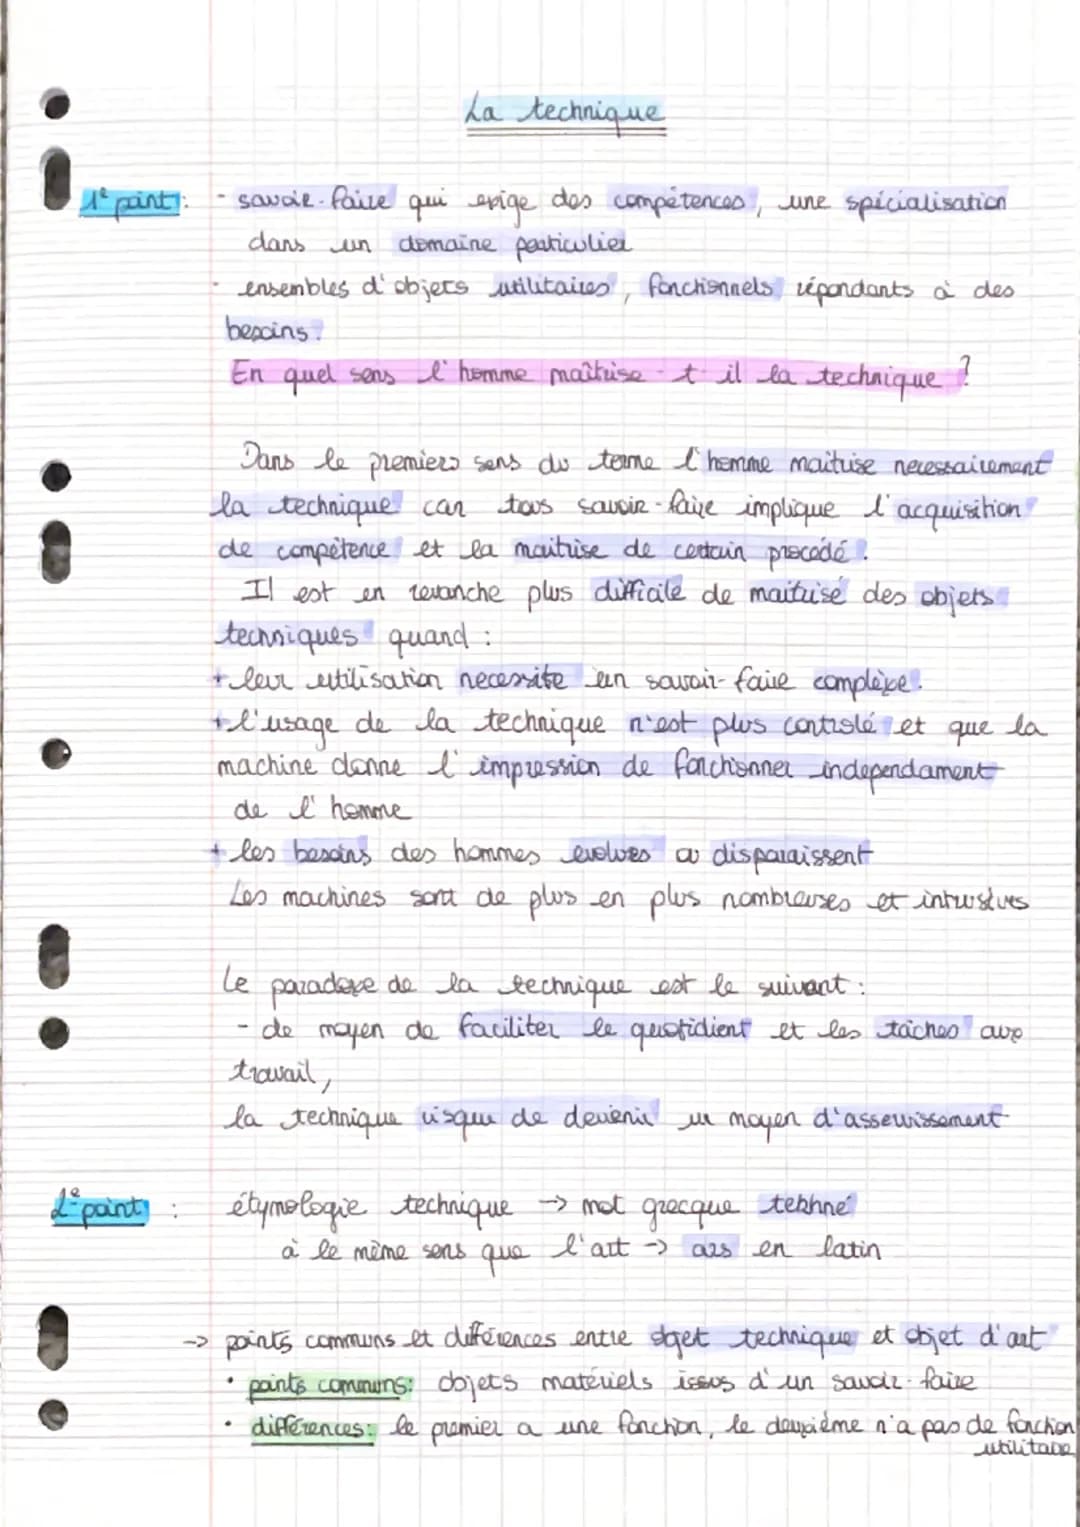 La technique
1e point : - savoir-faire qui exige des compétences, une spécialisation
dans un domaine particulier
- ensembles d'objets utilitaires, fonctionnels répondants à des
besoins.
En quel sens l'homme maîtrise-t-il la technique ?
Dans le premiers sens du terme l'homme maitrise necessairement
la technique car tous savoir-faire implique l'acquisition
de compétence et la maitrise de certain procédé.
Il est en revanche plus difficile de maitrisé des objets
techniques quand :
+ leur utilisation necessite un savoir-faire complexe.
+ l'usage de la technique n'est plus contrôlé et que la
machine donne l'impression de fonctionner independament
de l'homme
+ les besoins des hommes evolues ou disparaissent
Les machines sont de plus en plus nombreuses et intrusives
Le paradoxe de la technique est le suivant :
- de moyen de faciliter le quotidient et les tâches aux
travail,
la technique risque de devenir un moyen d'asservissement
2e point : étymologie technique → mot grecque tekhné
à le même sens que l'art → ars en latin
→ points communs et différences entre objet technique et objet d'art
• points communs: objets matériels issus d'un savoir-faire
• différences: le premier a une fonction, le deuxième n'a pas de fonction
utilitaire